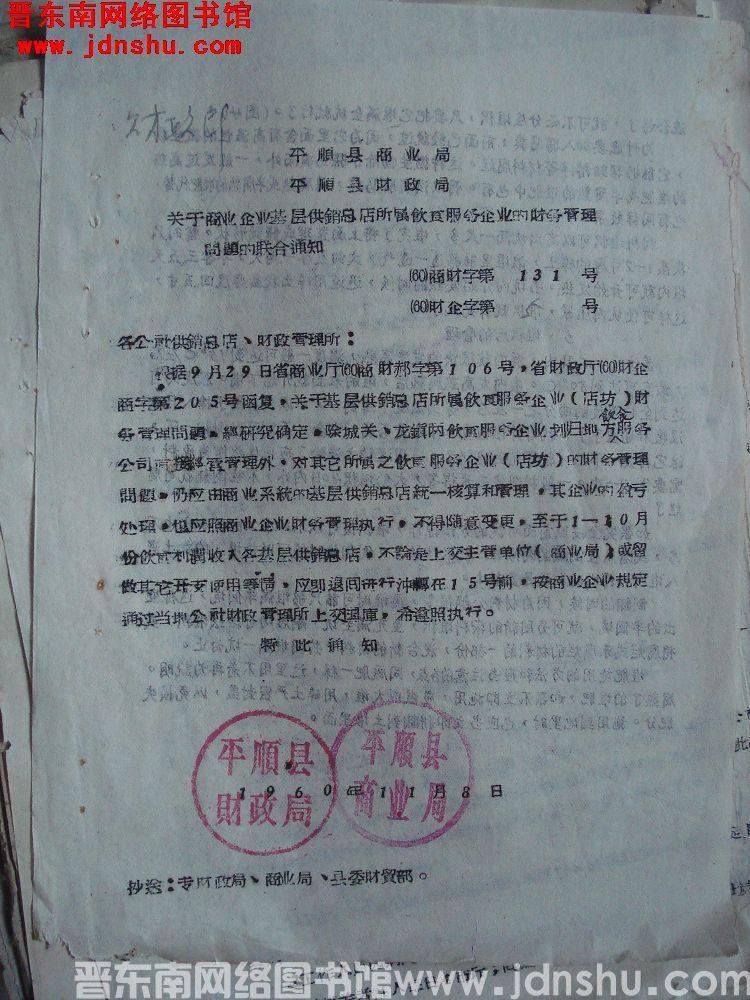 晋东南网络图书馆
www.jdnshu.com
平順县商业局
平順县财政局
关于商业企业基层供销总店所属飲食服务企业的財务管理
問題的联合通知
(60)商財字第 131 号
(60)财企字第 号
各公社供銷总店、財政管理所：
根据9月29日省商业厅(60)商財郝字第106号，省財政厅(60)財企
商字第205号函复，关于基层供銷总店所属飲食服务企业（店坊）財
务管理問題，經研究确定，除城关、龙鎮两飲食服务企业划归地方飲食服务
公司經营管理外，对其它所属之飲食服务企业（店坊）的財务管理
問題，仍应由商业系統的基层供銷总店統一核算和管理，其企业的盈亏
处理，也应照商业企业財务管理执行，不得随意变更，至于1—10月
份飲食利潤收入各基层供銷总店，不論是上交主管单位（商业局）或留
做其它开支 用等情，应即退回进行沖轉在15号前，按商业企业規定
通过当地公社財政管理所上交国庫，希遵照执行。
特此通知
平順县財政局
平順县商业局
1960年11月8日
抄送：专財政局、商业局、县委財貿部。
晋东南网络图书馆 www.jdnshu.com